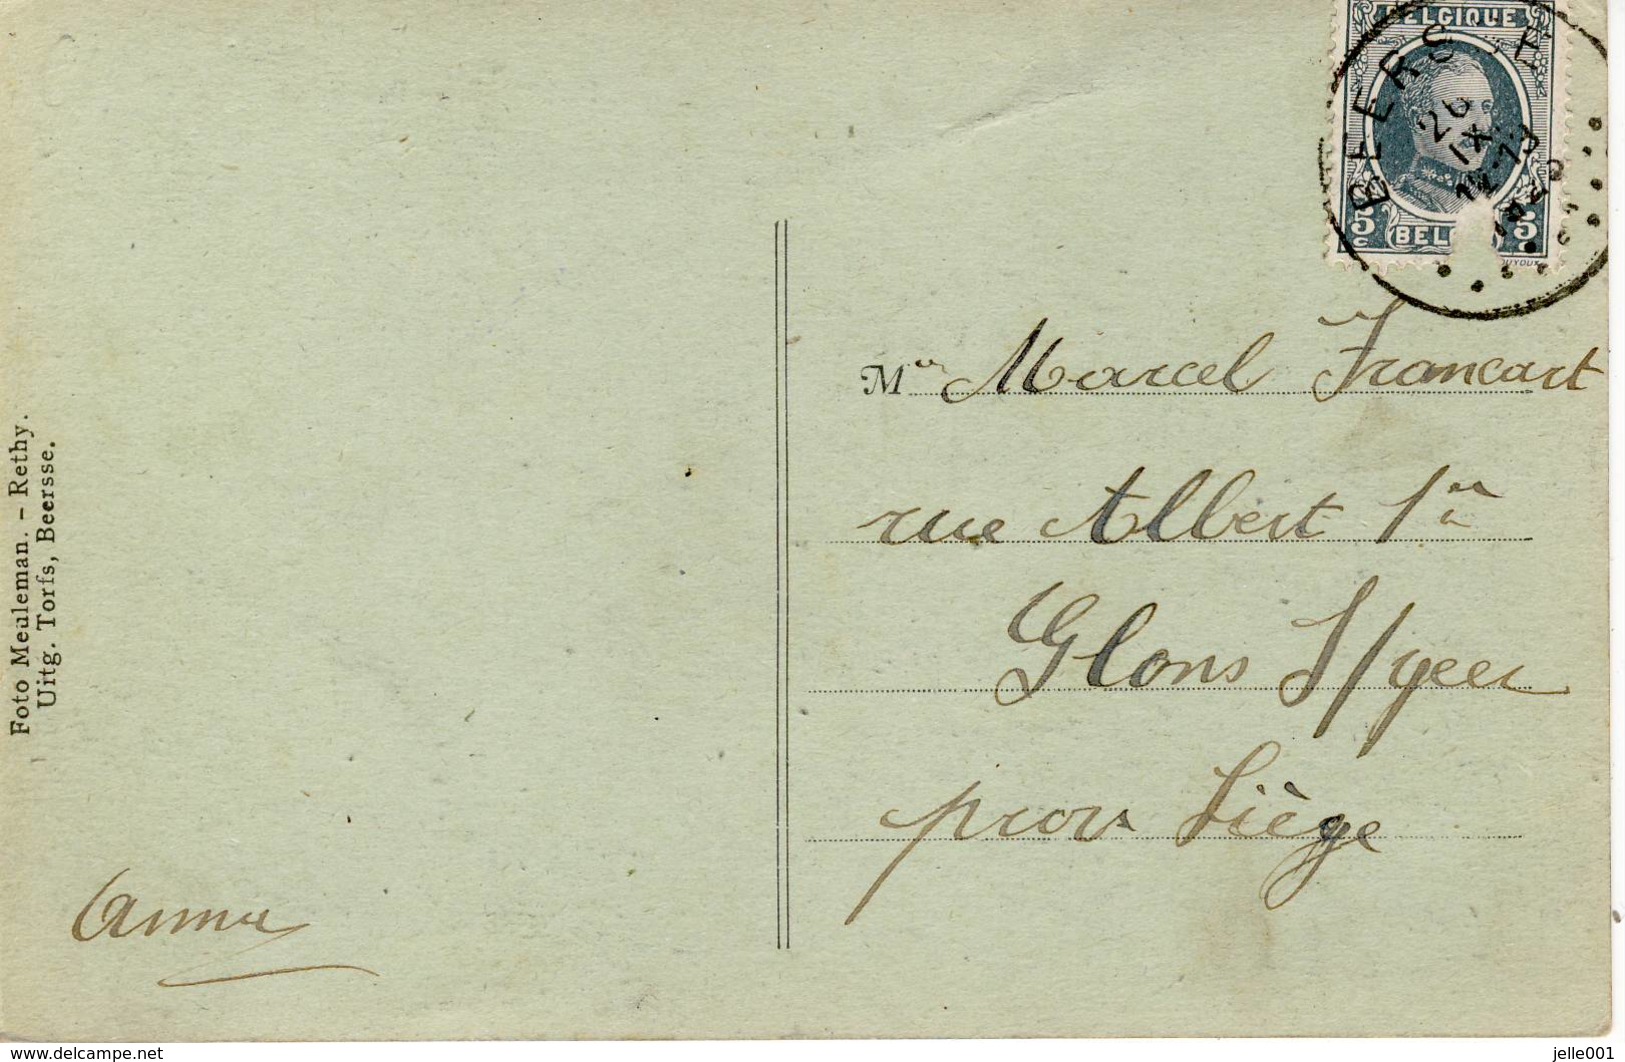 BELGIQUE
BEERSSE
26
IX
12-13
5c
5c
Foto Meuleman. - Rethy.
Uitg. Torfs, Beersse.
M Marcel Francart
rue Albert 1er
Glons S/geer
prov Liége
Anna
www.delcampe.net
jelle001